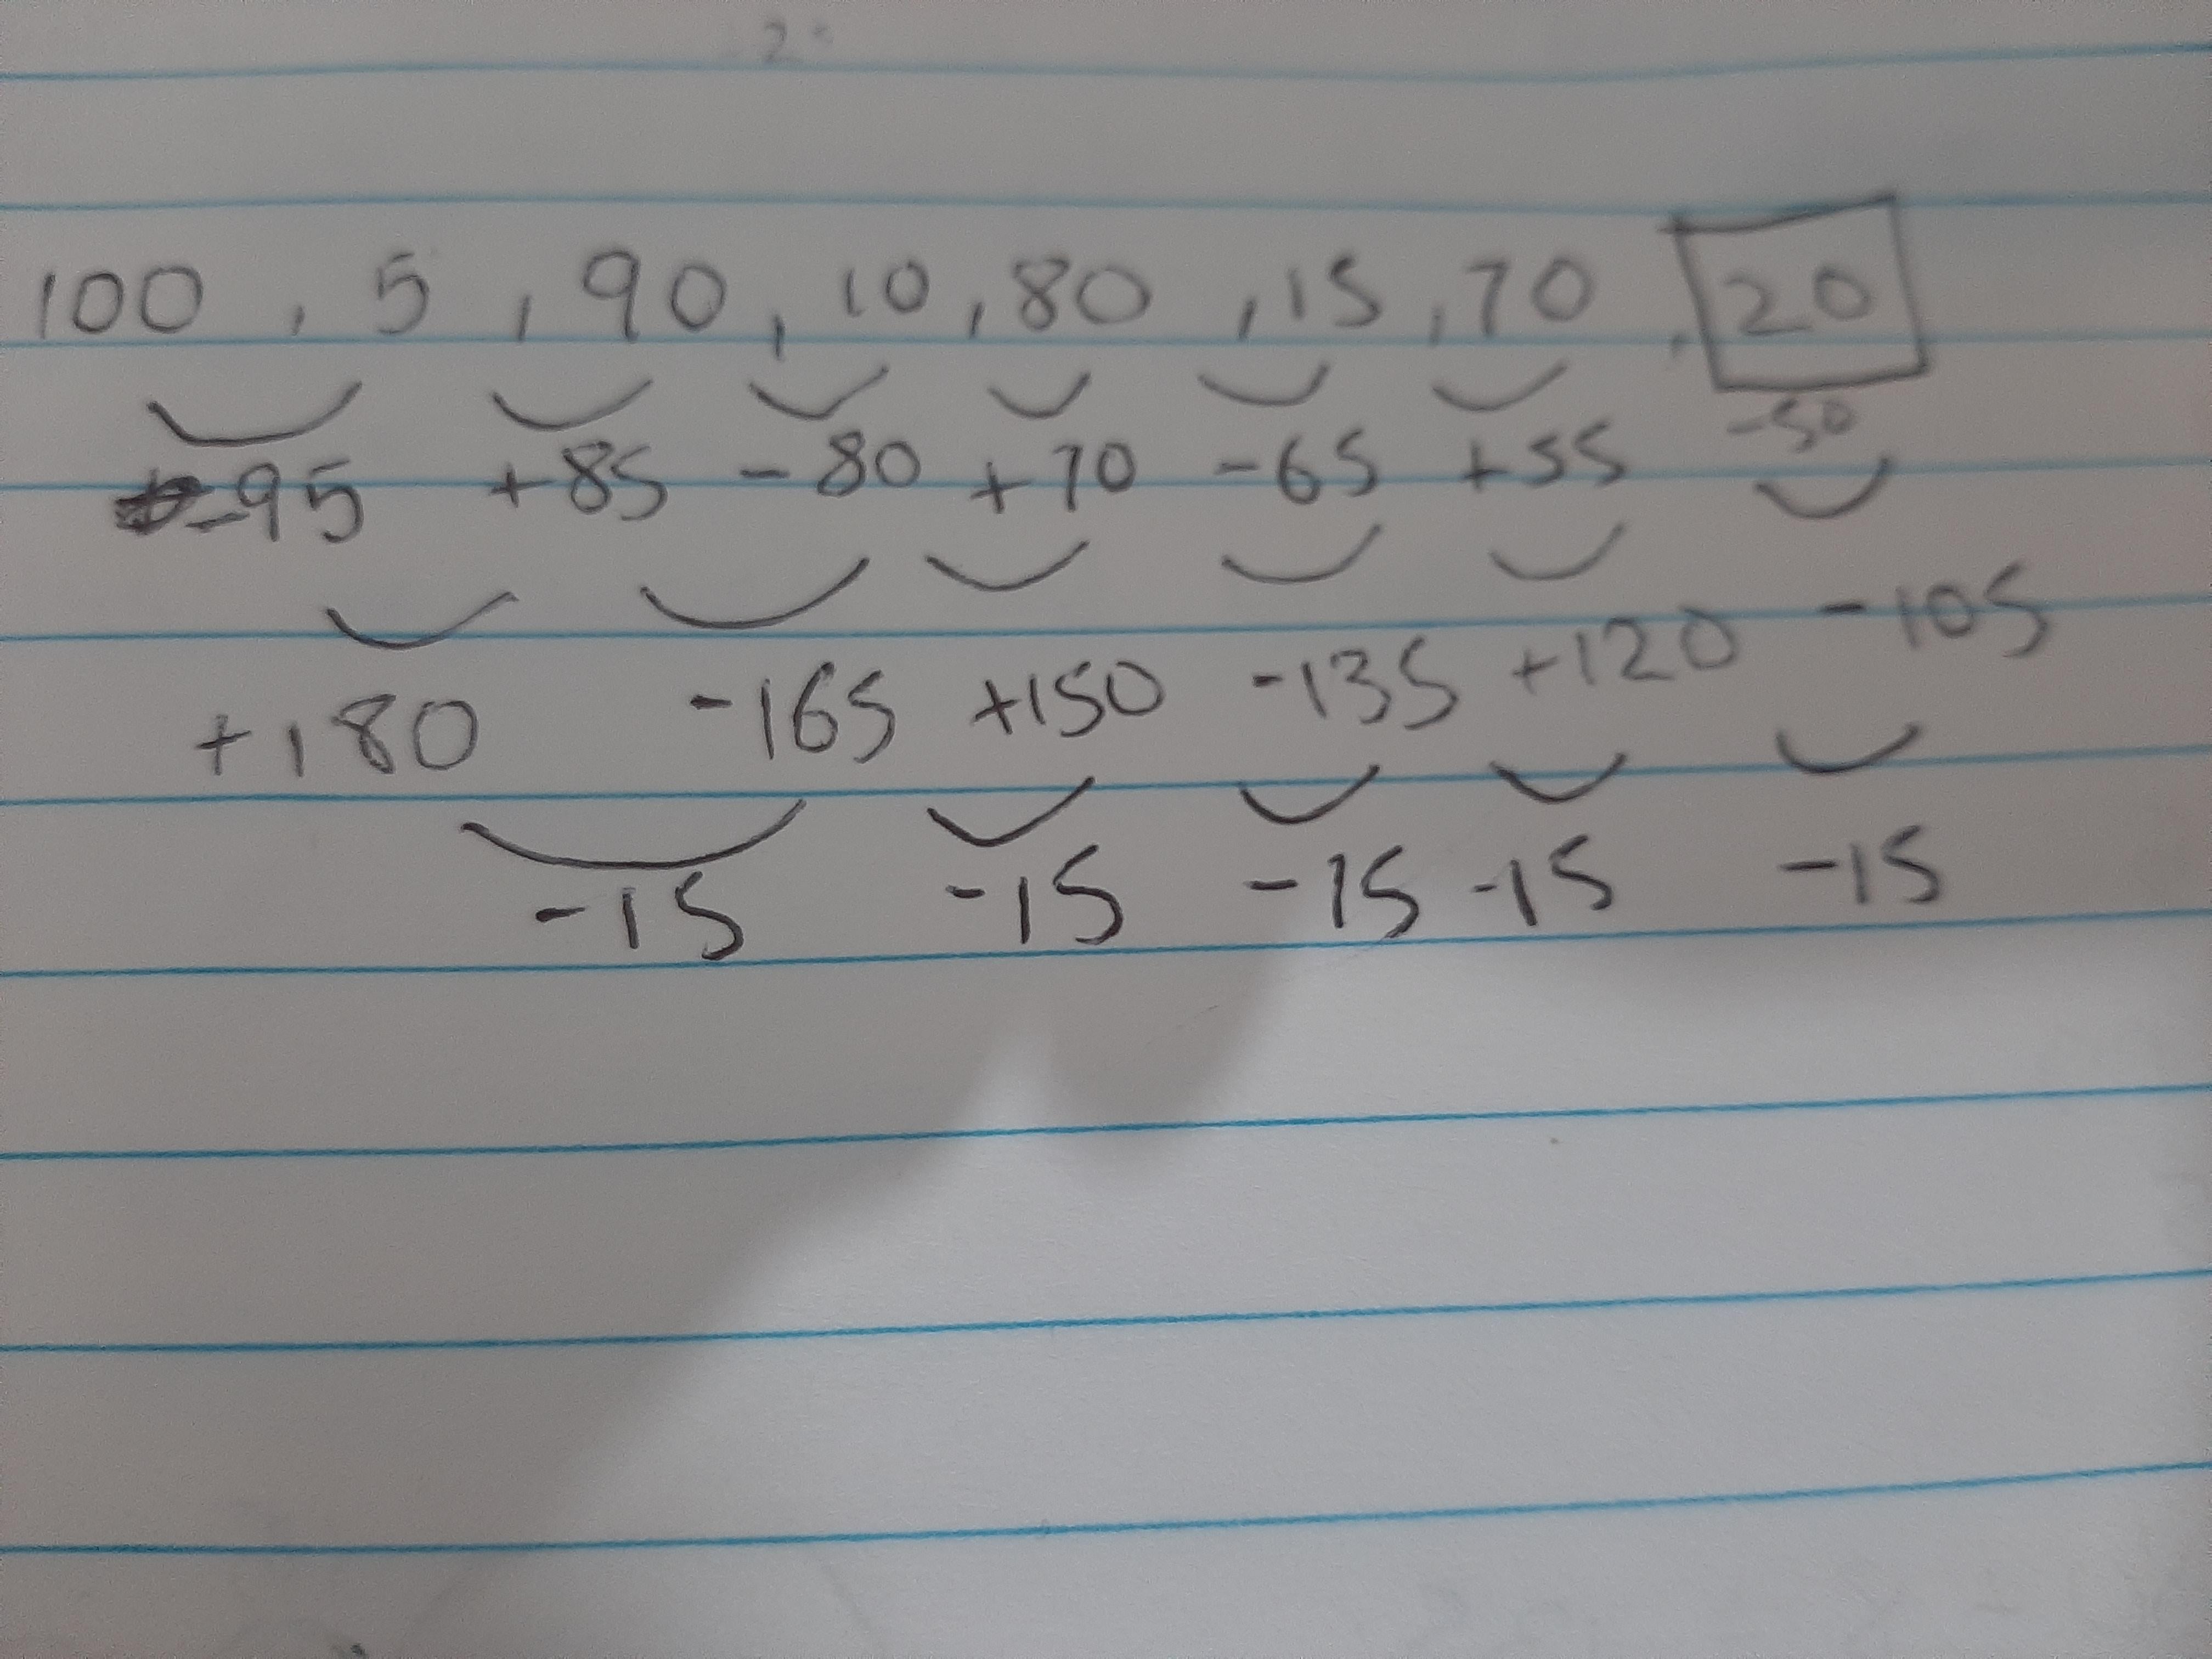 100 , 5 , 90 , 10 , 80 , 15 , 70 , 20
-95 +85 -80 +70 -65 +55 -50
+180 -165 +150 -135 +120 -105
-15 -15 -15 -15 -15